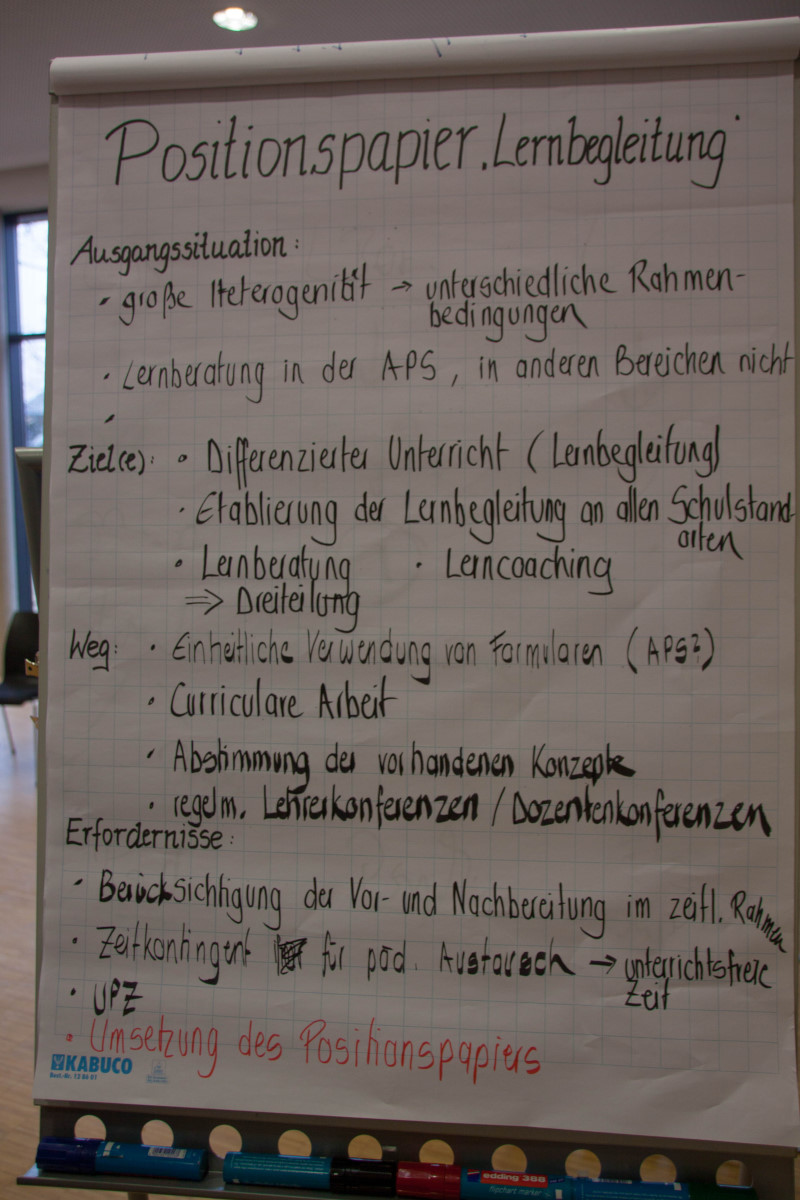 Positionspapier. Lernbegleitung
Ausgangssituation:
• große Heterogenität → unterschiedliche Rahmen-
bedingungen
• Lernberatung in der APS, in anderen Bereichen nicht
Ziel(e): • Differenzierter Unterricht (Lernbegleitung)
• Etablierung der Lernbegleitung an allen Schulstand-
orten
• Lernberatung • Lerncoaching
⇒ Dreiteilung
Weg: • Einheitliche Verwendung von Formularen (APS?)
• Curriculare Arbeit
• Abstimmung der vorhandenen Konzepte
• regelm. Lehrerkonferenzen / Dozentenkonferenzen
Erfordernisse:
• Berücksichtigung der Vor- und Nachbereitung im zeitl. Rahmen
• Zeitkontingent für päd. Austausch → unterrichtsfreie
Zeit
• UPZ
• Umsetzung des Positionspapiers
KABUCO
edding 388
flipchart marker